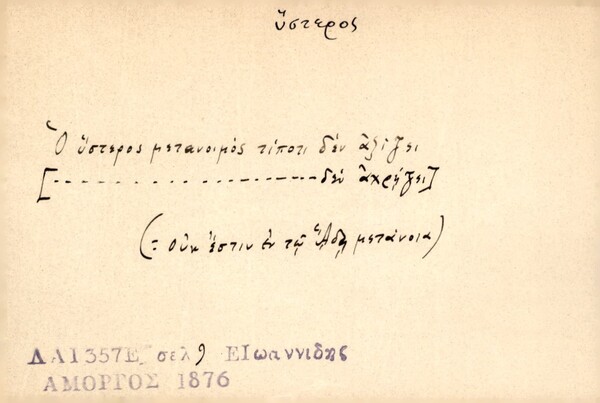 ὕστερος
Ὁ ὕστερος μετανοιμός τίποτι δὲν ἀξίζει
[-------------------δὲν ἀχρήζει]
(= οὐκ ἔστιν ἐν τῷ ᾍδῃ μετάνοια)
ΔΑ1357Ε σελ 9 ΕΙωαννιδης
ΑΜΟΡΓΟΣ 1876